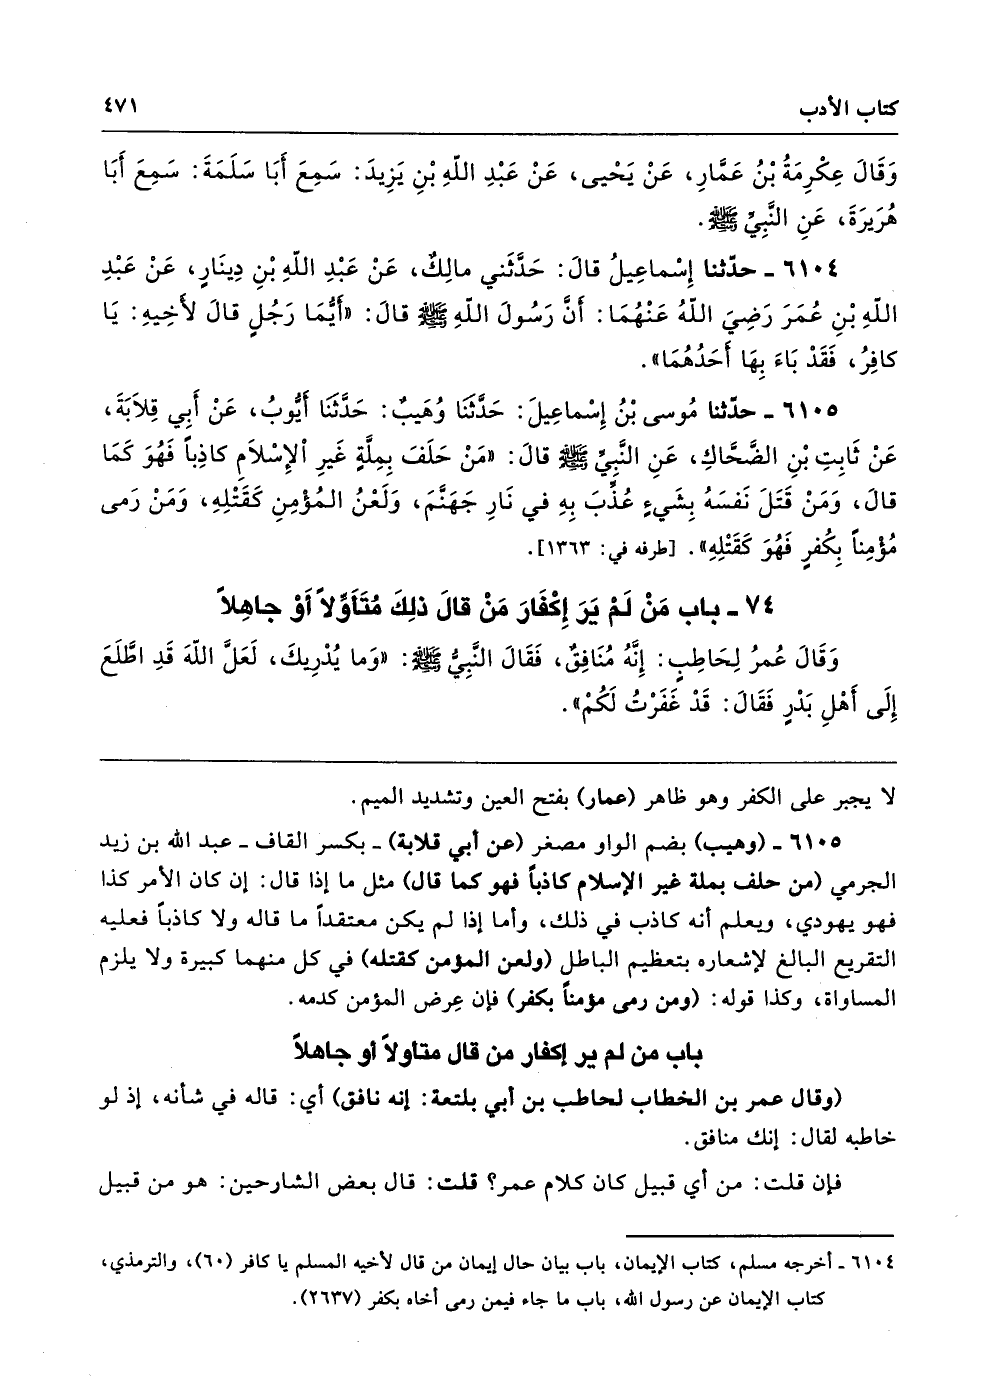 كتاب الأدب ٤٧١
وَقَالَ عِكْرِمَةُ بْنُ عَمَّارٍ، عَنْ يَحْيى، عَنْ عَبْدِ اللّهِ بْنِ يَزِيدَ: سَمِعَ أَبَا سَلَمَةَ: سَمِعَ أَبَا
هُرَيرَةَ، عَنِ النَّبِيِّ ﷺ.
٦١٠٤ ـ حدّثنا إِسْماعِيلُ قالَ: حَدَّثَني مالِكٌ، عَنْ عَبْدِ اللّهِ بْنِ دِينَارٍ، عَنْ عَبْدِ
اللّهِ بْنِ عُمَرَ رَضِيَ اللّهُ عَنْهُمَا: أَنَّ رَسُولَ اللّهِ ﷺ قالَ: «أَيُّمَا رَجُلٍ قالَ لأَخِيهِ: يَا
كافِرُ، فَقَدْ بَاءَ بِهَا أَحَدُهُمَا».
٦١٠٥ ـ حدّثنا مُوسى بْنُ إِسْماعِيلَ: حَدَّثَنَا وُهَيبٌ: حَدَّثَنَا أَيُّوبُ، عَنْ أَبِي قِلاَبَةَ،
عَنْ ثَابِتِ بْنِ الضَّحَّاكِ، عَنِ النَّبِيِّ ﷺ قالَ: «مَنْ حَلَفَ بِمِلَّةٍ غَيرِ الإِسْلاَمِ كاذِباً فَهُوَ كَمَا
قالَ، وَمَنْ قَتَلَ نَفسَهُ بِشَيءٍ عُذِّبَ بِهِ في نَارِ جَهَنَّمَ، وَلَعْنُ المُؤْمِنِ كَقَتْلِهِ، وَمَنْ رَمى
مُؤْمِناً بِكُفرٍ فَهُوَ كَقَتْلِهِ». [طرفه في: ١٣٦٣].
٧٤ ـ باب مَنْ لَمْ يَرَ إِكْفَارَ مَنْ قالَ ذلِكَ مُتَأَوِّلاً أَوْ جاهِلاً
وَقَالَ عُمرُ لِحَاطِبٍ: إِنَّهُ مُنَافِقٌ، فَقَالَ النَّبِيُّ ﷺ: «وَما يُدْرِيكَ، لَعَلَّ اللّهَ قَدِ اطَّلَعَ
إِلَى أَهْلِ بَدْرٍ فَقَالَ: قَدْ غَفَرْتُ لَكُمْ».
لا يجبر على الكفر وهو ظاهر (عمار) بفتح العين وتشديد الميم.
٦١٠٥ ـ (وهيب) بضم الواو مصغر (عن أبي قلابة) ـ بكسر القاف ـ عبد الله بن زيد
الجرمي (من حلف بملة غير الإسلام كاذباً فهو كما قال) مثل ما إذا قال: إن كان الأمر كذا
فهو يهودي، ويعلم أنه كاذب في ذلك، وأما إذا لم يكن معتقداً ما قاله ولا كاذباً فعليه
التقريع البالغ لإشعاره بتعظيم الباطل (ولعن المؤمن كقتله) في كل منهما كبيرة ولا يلزم
المساواة، وكذا قوله: (ومن رمى مؤمناً بكفر) فإن عِرض المؤمن كدمه.
باب من لم ير إكفار من قال متأولاً أو جاهلاً
(وقال عمر بن الخطاب لحاطب بن أبي بلتعة: إنه نافق) أي: قاله في شأنه، إذ لو
خاطبه لقال: إنك منافق.
فإن قلت: من أي قبيل كان كلام عمر؟ قلت: قال بعض الشارحين: هو من قبيل
٦١٠٤ ـ أخرجه مسلم، كتاب الإيمان، باب بيان حال إيمان من قال لأخيه المسلم يا كافر (٦٠)، والترمذي،
كتاب الإيمان عن رسول الله، باب ما جاء فيمن رمى أخاه بكفر (٢٦٣٧).